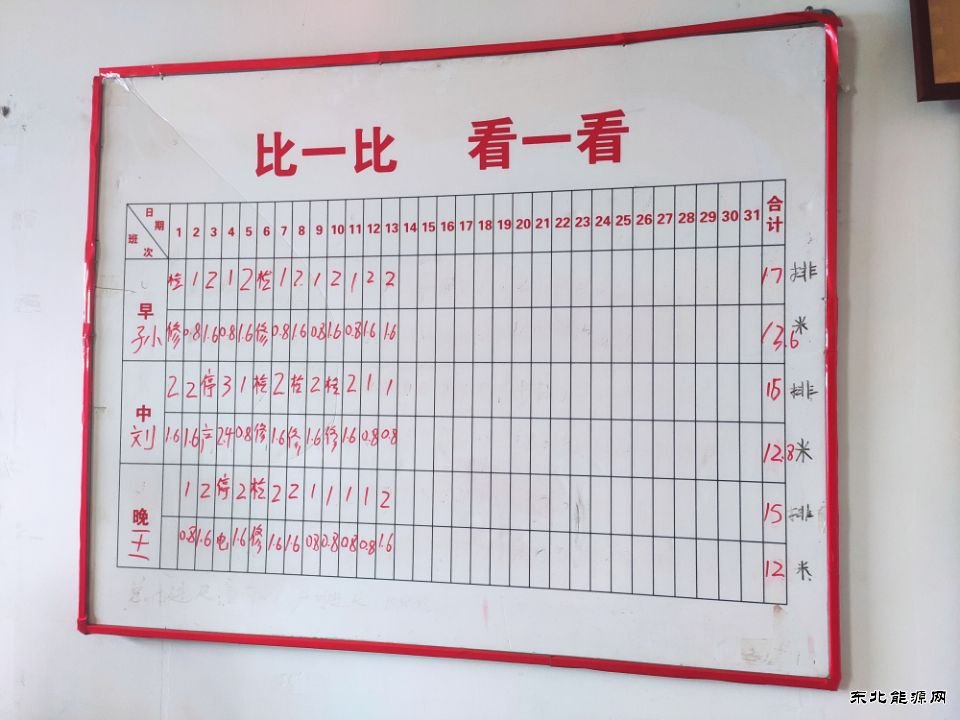 比一比 看一看
日期 班次 1 2 3 4 5 6 7 8 9 10 11 12 13 14 15 16 17 18 19 20 21 22 23 24 25 26 27 28 29 30 31 合计
检 1 2 1 2 检 1 2 1 2 1 2 2 17 排
早 小 修 0.8 1.6 0.8 1.6 修 0.8 1.6 0.8 1.6 0.8 1.6 1.6 13.6 米
2 2 停 3 1 检 2 检 2 检 2 1 1 排
中 刘 1.6 1.6 产 2.4 0.8 修 1.6 修 1.6 修 1.6 0.8 0.8 12.8 米
1 2 停 2 检 2 2 1 1 1 1 2 15 排
晚 0.8 1.6 电 1.6 修 1.6 1.6 0.8 0.8 0.8 0.8 1.6 12 米
东北能源网